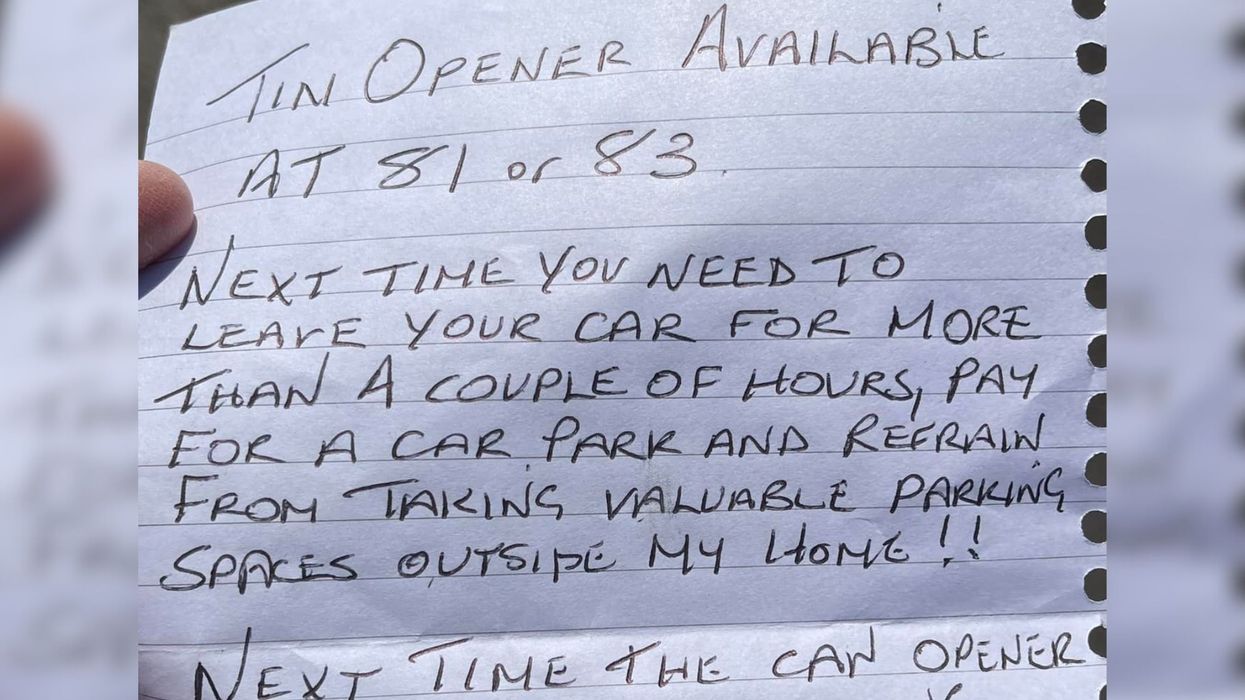 TIN OPENER AVAILABLE
AT 81 or 83.
NEXT TIME YOU NEED TO
LEAVE YOUR CAR FOR MORE
THAN A COUPLE OF HOURS, PAY
FOR A CAR PARK AND REFRAIN
FROM TAKING VALUABLE PARKING
SPACES OUTSIDE MY HOME!!
NEXT TIME THE CAN OPENER